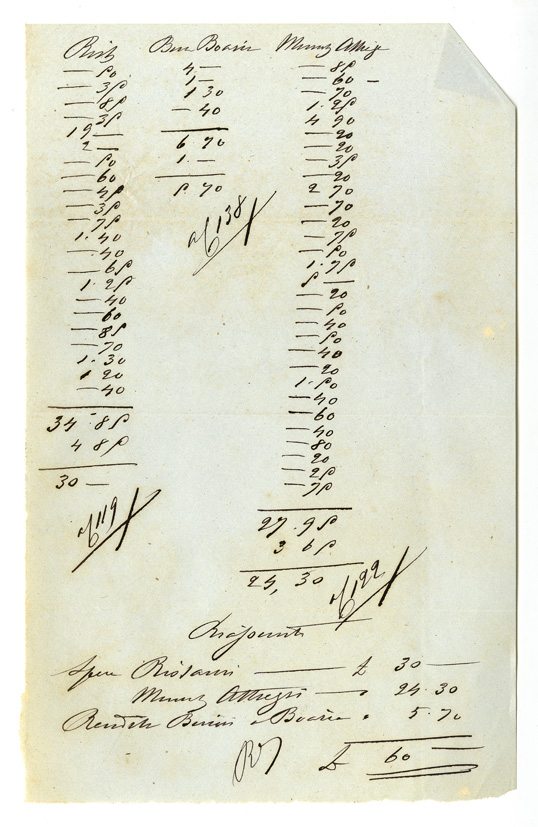 Rist
— 50
— 35
— 85
— 35
19 —
2 —
— 50
— 60
— 45
— 35
— 75
1.40
— 40
— 65
1.25
— 40
— 60
— 85
— 70
1.30
1 20
— 40
34.85
4 85
30 —
119
Boarie
4,—
1 —
1 30
— 40
6 70
1. —
5.70
138
Allegr
— 85
— 60 —
— 70
1.25
4 90
— 20
— 20
— 35
— 20
2 70
— 70
— 20
— 75
— 50
1.75
5 —
— 20
— 50
— 40
— 50
— 40
— 20
1.50
— 40
— 60
— 40
— 80
— 20
— 25
— 75
27.95
3 65
24,30
122
Riassunto
Spese Ristauri — £ 30 —
Allegri — 24.30
Rendite e Boarie 5.70
£ 60 —